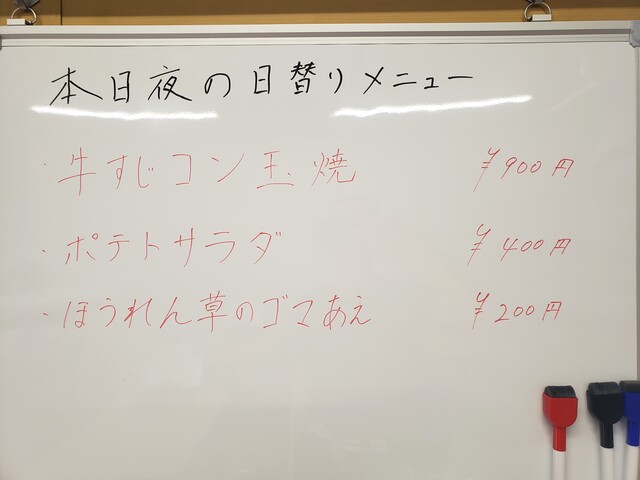 本日夜の日替りメニュー
・牛すじコン玉焼 ¥900円
・ポテトサラダ ¥400円
・ほうれん草のゴマあえ ¥200円